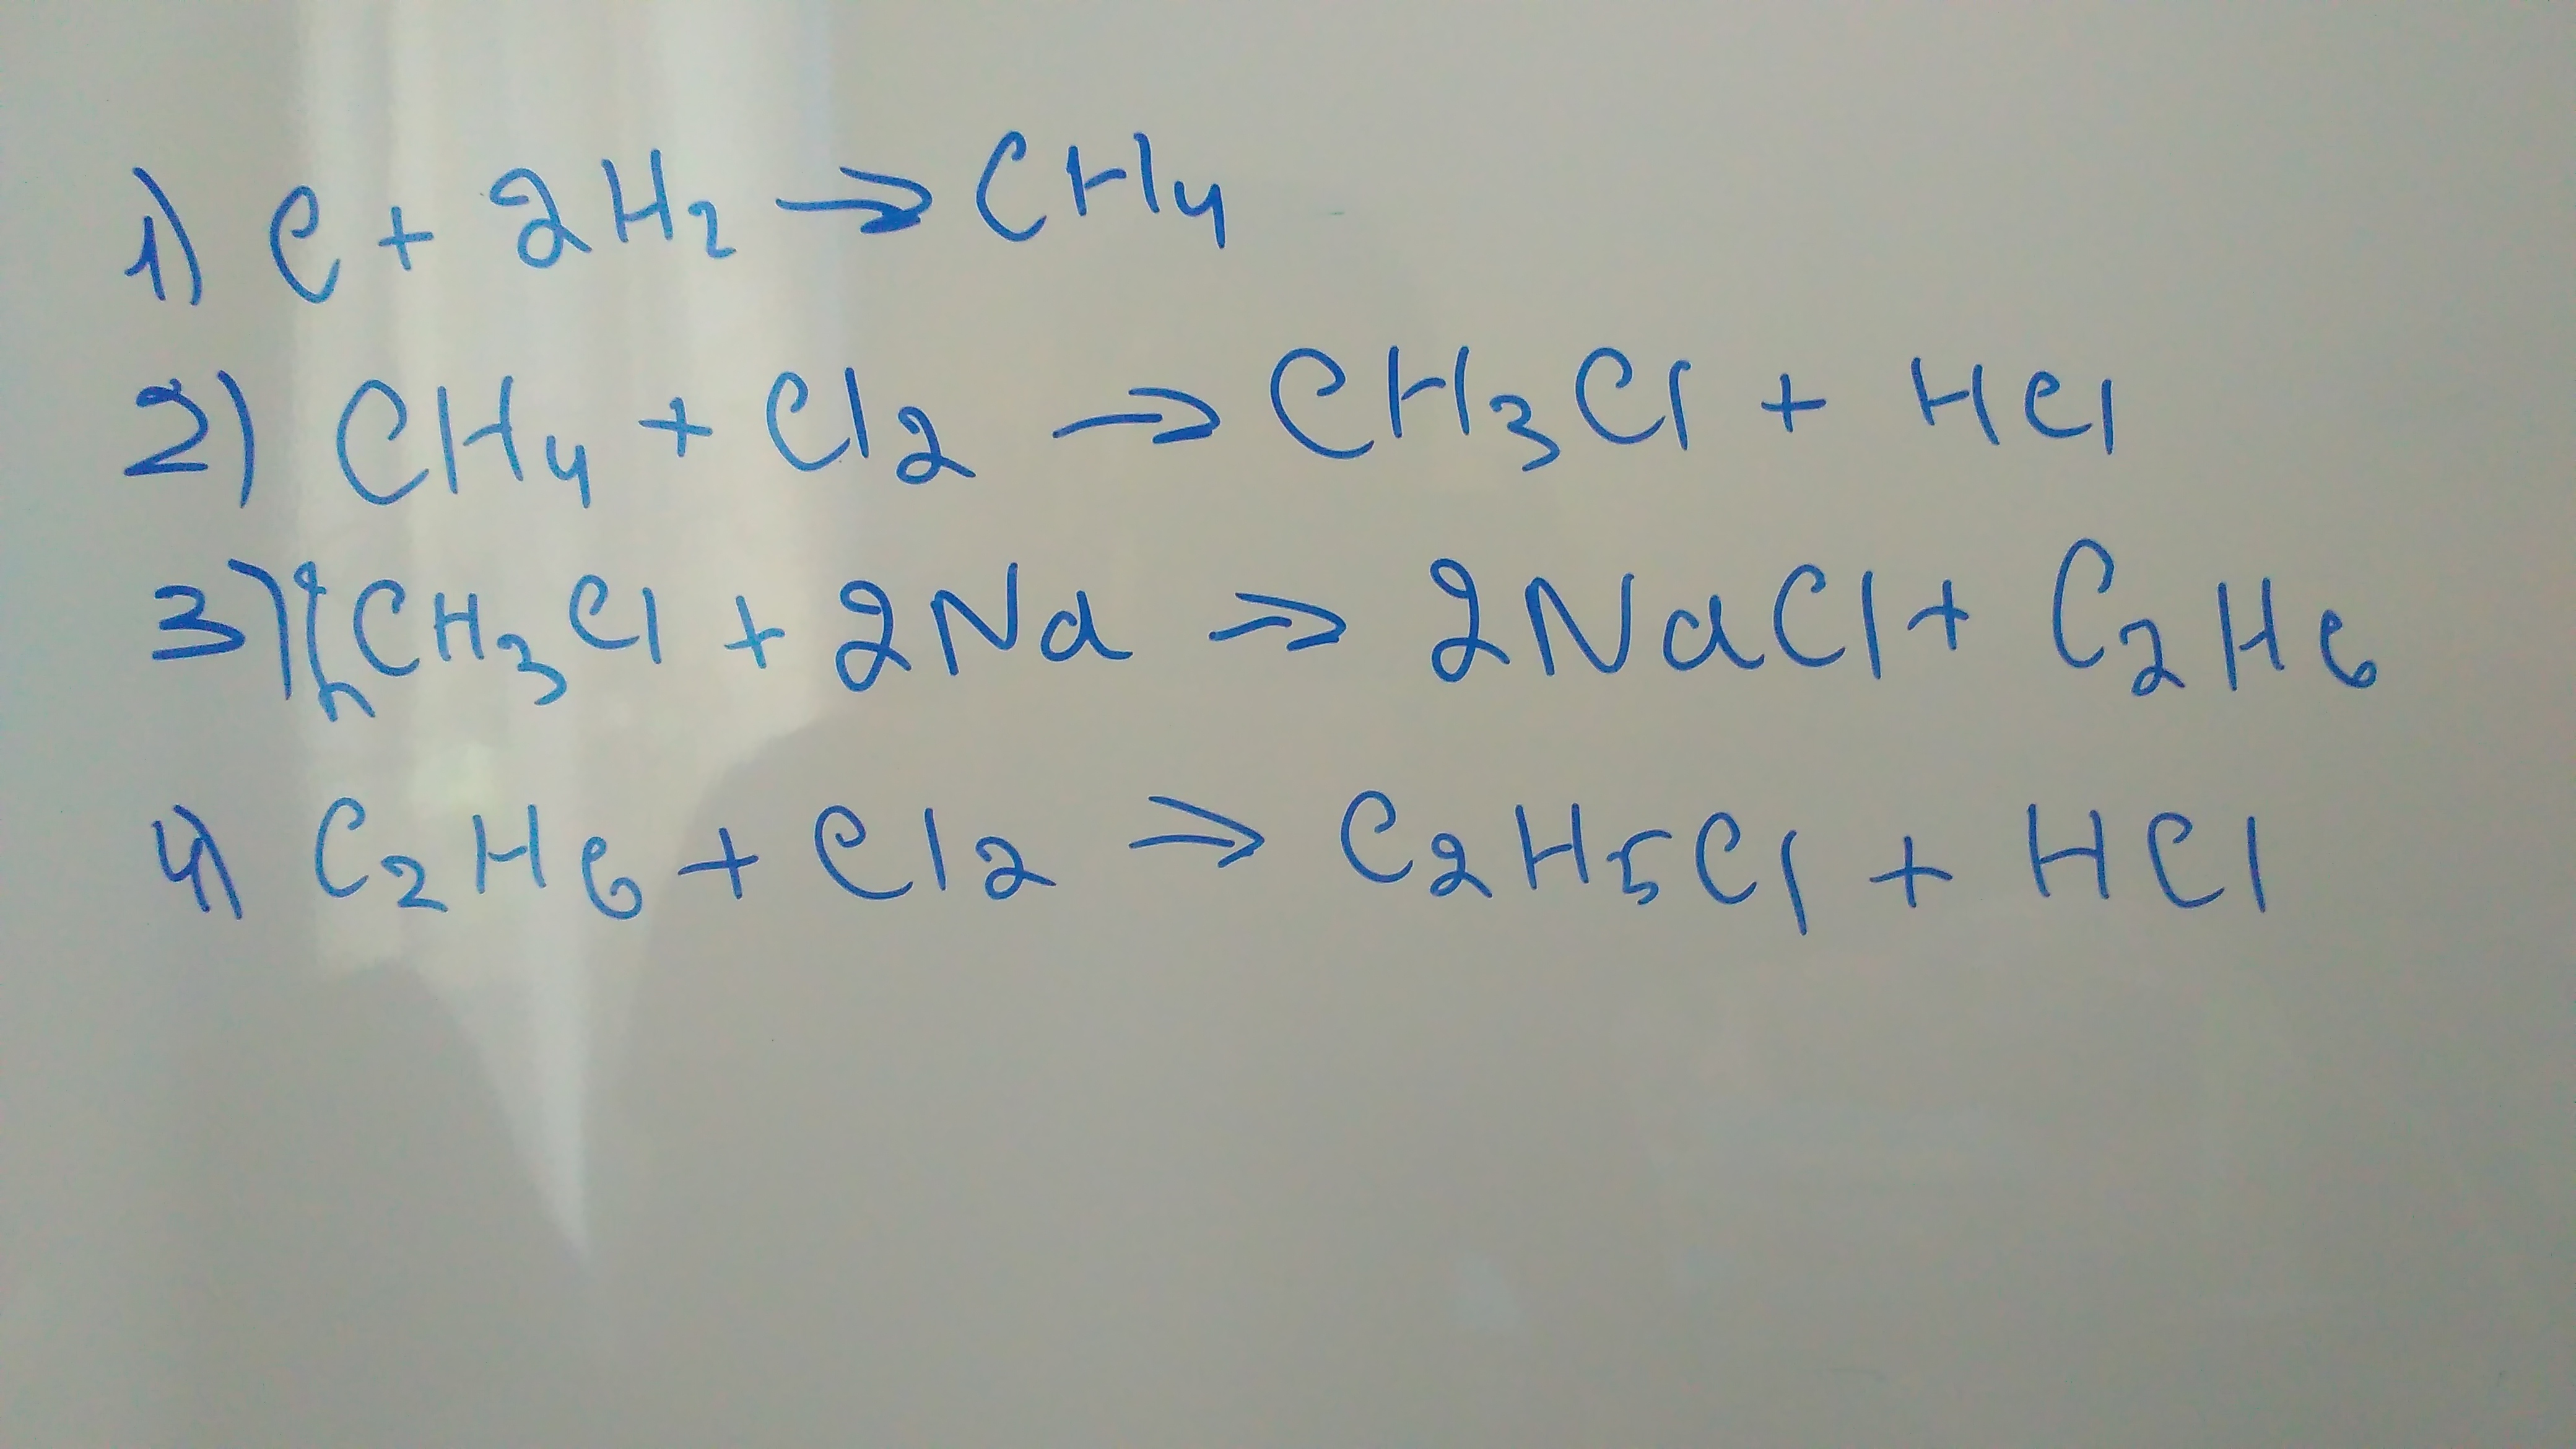 1) C + 2H₂ → CH₄
2) CH₄ + Cl₂ → CH₃Cl + HCl
3) 2CH₃Cl + 2Na → 2NaCl + C₂H₆
4) C₂H₆ + Cl₂ → C₂H₅Cl + HCl